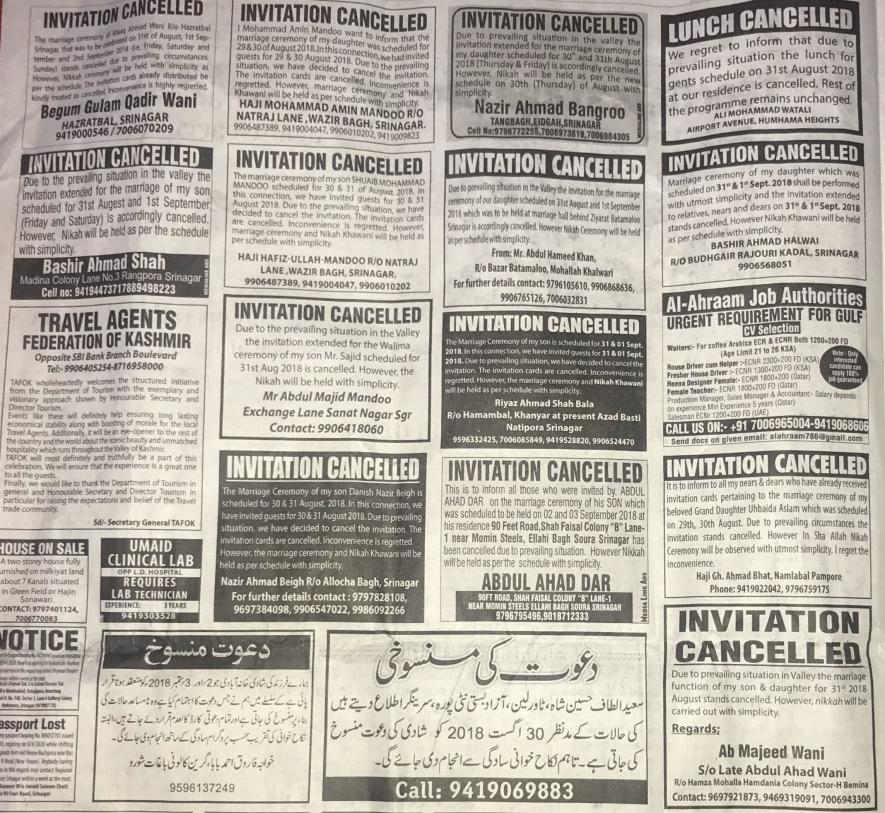 INVITATION CANCELLED
The marriage ceremony of Ahmad Wani R/o Hazratbal
Srinagar, that was to be on 31st of August, 1st Sep-
tember and 2nd September 2018 (i.e, Friday, Saturday and
Sunday) stands cancelled due to prevailing circumstances.
However, Nikkah ceremony will be held with simplicity as
per the schedule. The invitation cards already distributed be
kindly treated as cancelled. Inconvenience is highly regretted.
Begum Gulam Qadir Wani
HAZRATBAL, SRINAGAR
9419000546 / 7006070209
INVITATION CANCELLED
I Mohammad Amin Mandoo want to inform that the
marriage ceremony of my daughter was scheduled for
29&30 of August 2018. In this connection, we had invited
guests for 29 & 30 August 2018. Due to the prevailing
situation, we have decided to cancel the invitation.
The invitation cards are cancelled. Inconvenience is
regretted. However, marriage ceremony and 'Nikah
Khawani will be held as per schedule with simplicity.
HAJI MOHAMMAD AMIN MANDOO R/O
NATRAJ LANE ,WAZIR BAGH, SRINAGAR.
9906487389, 9419004047, 9906010202, 9419009823
INVITATION CANCELLED
Due to prevailing situation in the valley the
invitation extended for the marriage ceremony of
my daughter scheduled for 30th and 31th August
2018 (Thursday & Friday) is accordingly cancelled.
However, Nikah will be held as per the new
schedule on 30th (Thursday) of August with
simplicity.
Nazir Ahmad Bangroo
TANGBAGH,EIDGAH,SRINAGAR
Cell No:9796772255,7006973619,7006984305
LUNCH CANCELLED
We regret to inform that due to
prevailing situation the lunch for
gents schedule on 31st August 2018
at our residence is cancelled. Rest of
the programme remains unchanged.
ALI MOHAMMAD WATALI
AIRPORT AVENUE, HUMHAMA HEIGHTS
INVITATION CANCELLED
Due to the prevailing situation in the valley the
invitation extended for the marriage of my son
scheduled for 31st Augest and 1st September
(Friday and Saturday) is accordingly cancelled.
However, Nikah will be held as per the schedule
with simplicity.
Bashir Ahmad Shah
Madina Colony Lane No.3 Rangpora Srinagar
Cell no: 9419447371788949822​3
INVITATION CANCELLED
The marriage ceremony of my son SHUAIB MOHAMMAD
MANDOO scheduled for 30 & 31 of August 2018. In
this connection, we have invited guests for 30 & 31
August 2018. Due to the prevailing situation, we have
decided to cancel the invitation. The invitation cards
are cancelled. Inconvenience is regretted. However,
marriage ceremony and Nikah Khawani will be held as
per schedule with simplicity.
HAJI HAFIZ-ULLAH-MANDOO R/O NATRAJ
LANE ,WAZIR BAGH, SRINAGAR.
9906487389, 9419004047, 9906010202
INVITATION CANCELLED
Due to prevailing situation in the Valley the invitation for the marriage
ceremony of our daughter scheduled on 31st August and 1st September
2018 which was to be held at marriage hall behind Ziyarat Batamaloo
Srinagar is accordingly cancelled. However Nikah Ceremony will be held
as per schedule with simplicity.
From: Mr. Abdul Hameed Khan,
R/o Bazar Batamaloo, Mohallah Khalwari
For further details contact: 9796105610, 9906868636,
9906765126, 7006032831
INVITATION CANCELLED
Marriage ceremony of my daughter which was
scheduled on 31st & 1st Sept. 2018 shall be performed
with utmost simplicity and the invitation extended
to relatives, nears and dears on 31st & 1st Sept. 2018
stands cancelled. However Nikah Khawani will be held
as per schedule with simplicity.
BASHIR AHMAD HALWAI
R/O BUDHGAIR RAJOURI KADAL, SRINAGAR
9906568051
TRAVEL AGENTS
FEDERATION OF KASHMIR
Opposite SBI Bank Branch Boulevard
Tel:- 9906405254-8716958000
TAFOK wholeheartedly welcomes the structured initiative
from the Department of Tourism with the exemplary and
visionary approach shown by Honourable Secretary and
Director Tourism.
Events like these will definitely help ensuring long lasting
economical stability along with boosting of morale for the local
Travel Agents. Additionally, it will be an eye-opener to the rest of
the country and the world about the scenic beauty and unmatched
hospitality which runs throughout the Valley of Kashmir.
TAFOK will most definitely and truthfully be a part of this
celebration. We will ensure that the experience is a great one
to all the guests.
Finally, we would like to thank the Department of Tourism in
general and Honourable Secretary and Director Tourism in
particular for raising the expectations and belief of the Travel
trade community.
Sd/- Secretary General TAFOK
INVITATION CANCELLED
Due to the prevailing situation in the Valley
the invitation extended for the Walima
ceremony of my son Mr. Sajid scheduled for
31st Aug 2018 is cancelled. However, the
Nikah will be held with simplicity.
Mr Abdul Majid Mandoo
Exchange Lane Sanat Nagar Sgr
Contact: 9906418060
INVITATION CANCELLED
The Marriage Ceremony of my son is scheduled for 31 & 01 Sept.
2018. In this connection, we have invited guests for 31 & 01 Sept.
2018. Due to prevailing situation, we have decided to cancel the
invitation. The invitation cards are cancelled. Inconvenience is
regretted. However, the marriage ceremony and Nikah Khawani
will be held as per schedule with simplicity.
Riyaz Ahmad Shah Bala
R/o Hamambal, Khanyar at present Azad Basti
Natipora Srinagar
9596332425, 7006085849, 9419528820, 9906524470
Al-Ahraam Job Authorities
URGENT REQUIREMENT FOR GULF
CV Selection
Waiters:- For coffee Arabica ECR & ECNR Both 1200+200 FD
(Age Limit 21 to 26 KSA)
House Driver cum Helper :-ECNR 2300+200 FD (KSA)
Fresher House Driver :- ECNR 1300+200 FD (KSA)
Heena Designer Female:- ECNR 1800+200 (Qatar)
Female Teacher:- ECNR 1800+200 FD (Qatar)
Production Manager, Sales Manager & Accountant:- Salary depends
on experience Min Experience 5 years (Qatar)
Salesman ECNR 1200+200 FD (UAE)
Note:- Only
interested
candidate can
apply 100%
job guaranteed
CALL US ON:- +91 7006965004-9419068606
Send docs on given email: alahraam786@gmail.com
INVITATION CANCELLED
The Marriage Ceremony of my son Danish Nazir Beigh is scheduled
for 30 & 31 August, 2018. In this connection, we
have invited guests for 30 & 31 August 2018. Due to prevailing
situation, we have decided to cancel the invitation. The
invitation cards are cancelled. Inconvenience is regretted.
However, the marriage ceremony and Nikah Khawani will be
held as per schedule with simplicity.
Nazir Ahmad Beigh R/o Allocha Bagh, Srinagar
For further details contact : 9797828108,
9697384098, 9906547022, 9986092266
INVITATION CANCELLED
This is to inform all those who were invited by. ABDUL
AHAD DAR on the marriage ceremony of his SON which
was scheduled to be held on 02 and 03 September 2018 at
his residence 90 Feet Road,Shah Faisal Colony "B" Lane-
1 near Momin Steels, Ellahi Bagh Soura Srinagar has
been cancelled due to prevailing situation. However Nikkah
will be held as per the schedule with simplicity.
ABDUL AHAD DAR
90FT ROAD, SHAH FAISAL COLONY "B" LANE-1
NEAR MOMIN STEELS, ELLAHI BAGH SOURA SRINAGAR
9796795496,9018712333
MEDIA LINE ADS
INVITATION CANCELLED
It is to inform to all my nears & dears who have already received
invitation cards pertaining to the marriage ceremony of my
beloved Grand Daughter Uhbaida Aslam which was scheduled
on 29th, 30th August. Due to prevailing circumstances the
invitation stands cancelled. However In Sha Allah Nikah
Ceremony will be observed with utmost simplicity. I regret the
inconvenience.
Haji Gh. Ahmad Bhat, Namlabal Pampore
Phone: 9419022042, 9796759175
HOUSE ON SALE
A two storey house fully
furnished on milkiyat land
about 7 Kanals situated
in Green Field or Hajin
Sonawari.
CONTACT: 9797401124,
7006770083
UMAID
CLINICAL LAB
OPP L.D. HOSPITAL
REQUIRES
LAB TECHNICIAN
EXPERIENCE: 3 YEARS
9419303528
NOTICE
دعوت منسوخ
ہمارے فرزند کی شادی خانہ آبادی جو 2 اور 3 ستمبر 2018 کو منعقد ہونا قرار
پائی ہے کے سلسلے میں ہم نے جس دعوت کا اہتمام کیا ہے وہ نامساعد حالات کی
بناء پر منسوخ کی جاتی ہے اور تمام دعوتی کارڈ کالعدم قرار دیے جاتے ہیں، البتہ
نکاح خوانی کی تقریب حسب پروگرام سادگی کے ساتھ انجام دی جائے گی۔
خواجہ فاروق احمد بابا، گرین کالونی باغات شورو
9596137249
دعوت کی منسوخی
سعید الطاف حسین شاہ، ٹاورلین، آزاد بستی نٹی پورہ، سرینگر اطلاع دیتے ہیں
کی حالات کے مدنظر 30 اگست 2018 کو شادی کی دعوت منسوخ
کی جاتی ہے۔ تاہم نکاح خوانی سادگی سے انجام دی جائے گی۔
Call: 9419069883
INVITATION
CANCELLED
Due to prevailing situation in Valley the marriage
function of my son & daughter for 31st 2018
August stands cancelled. However, nikkah will be
carried out with simplicity.
Regards;
Ab Majeed Wani
S/o Late Abdul Ahad Wani
R/o Hamza Mohalla Hamdania Colony Sector-H Bemina
Contact: 9697921873, 9469319091, 7006943300
assport Lost